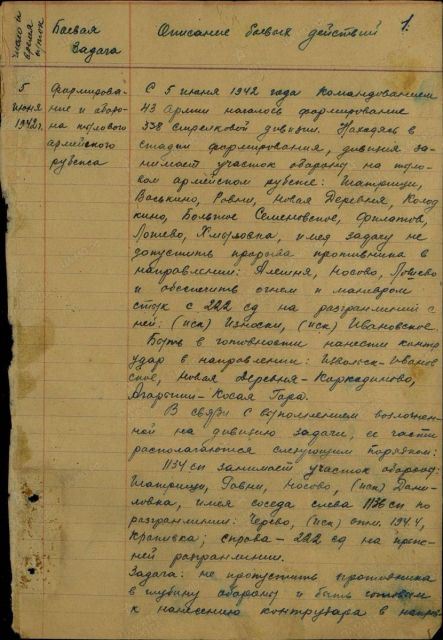 Число и время суток
Боевая задача
Описание боевых действий
1.
5 июня 1942г.
Формирова-
ние и оборо-
на тылового
армейского
рубежа
С 5 июня 1942 года командованием
43 Армии началось формирование
338 стрелковой дивизии. Находясь в
стадии формирования, дивизия за-
нимает участок обороны на тыло-
вом армейском рубеже: Шатрищи,
Васькино, Ровни, Новая Деревня, Колод
кино, Большое Семеновское, Филатов,
имея задачу не
допустить прорыва противника в
направлении: Алешня, Носово,
и обеспечить огнем и маневром
стык с 222 сд на разгранлинии с
ней: (иск) Износки, (иск) Ивановское.
Быть в готовности нанести контр
удар в направлении: Иванов
ское, Новая Деревня - Каркадиново,
Агарыши - Косая Гора.
В связи с выполнением возложен-
ной на дивизию задачи, ее части
располагаются следующим порядком:
1134 сп занимает участок обороны:
Шатрищи, Ровни, Носово, (иск) Дани-
ловка, имея соседа слева 1136 сп по
разгранлинии: (иск) отм. 194,4,
Крапивка; справа - 222 сд на преж-
ней разгранлинии.
Задача: не пропустить противника
в глубину обороны и быть готовым
к нанесению контрудара в напра